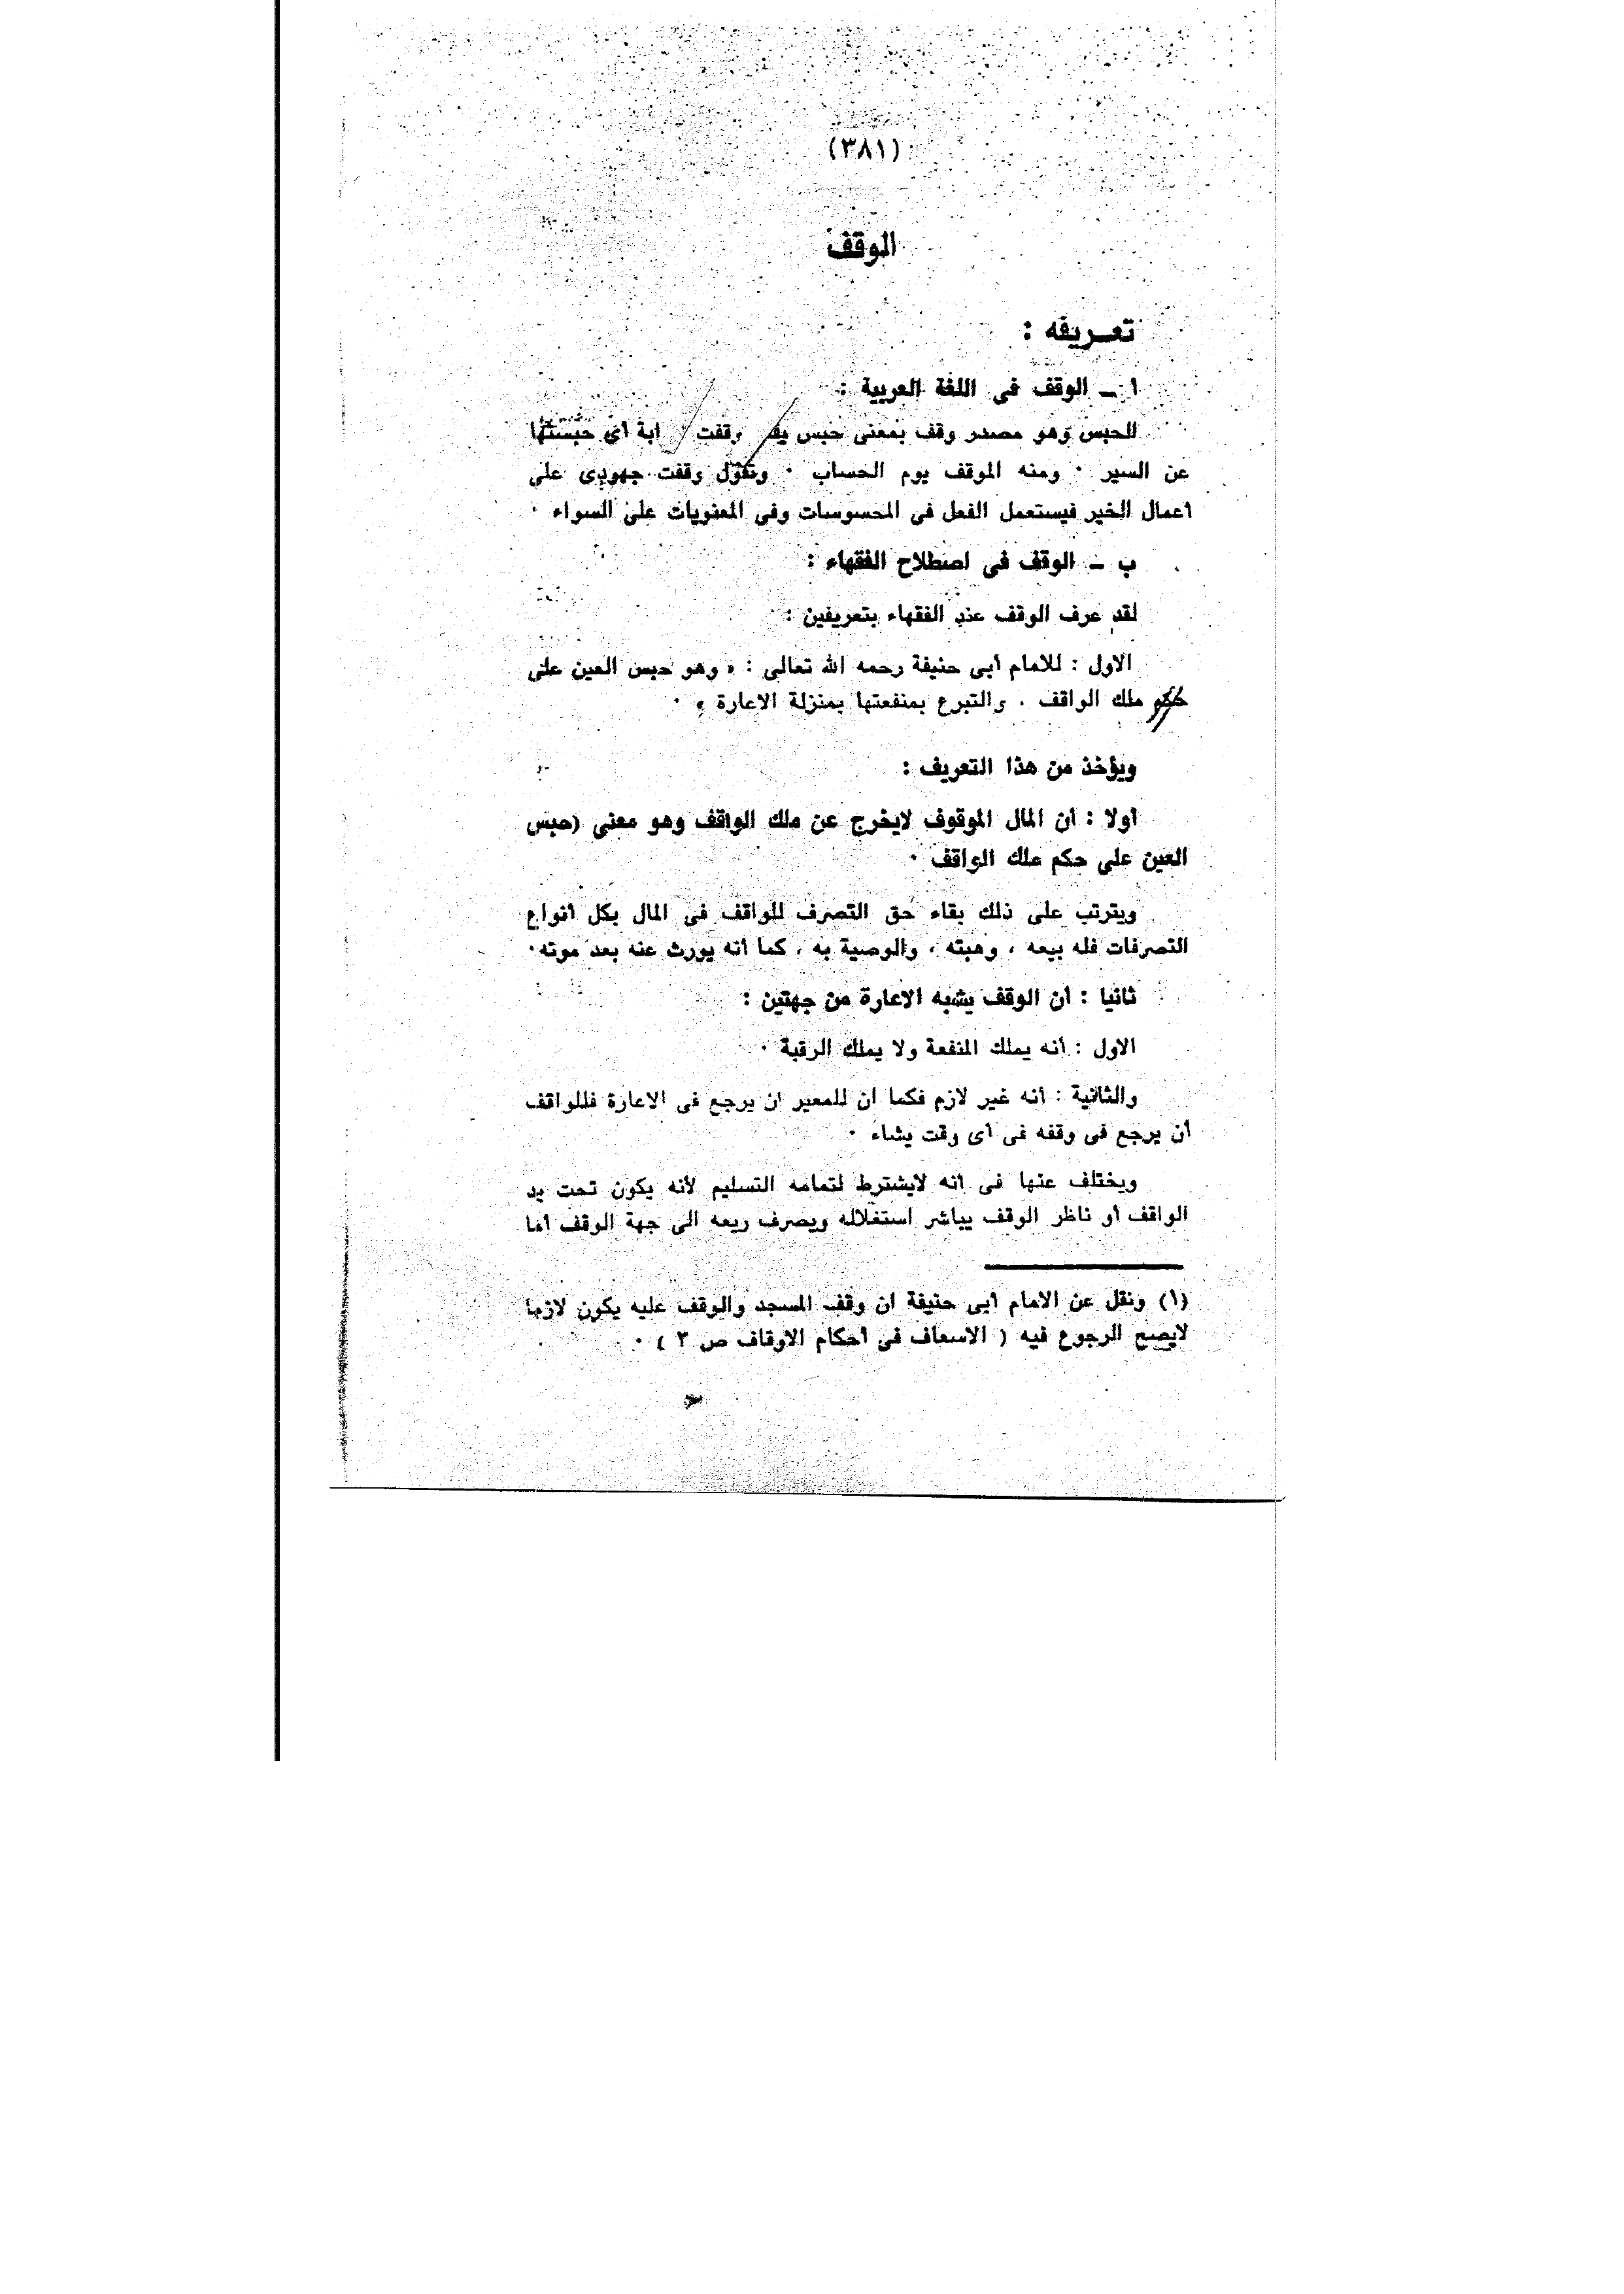 (٣٨١)
الموقف
تعـريفه :
ا ــ الوقف فى اللغة العربية :
الحبس وهو مصدر وقف بمعنى حبس وقفت أى حبستها
عن السير ٠ ومنه الموقف يوم الحساب ٠ وتقول وقفت جهودى على
اعمال الخير فيستعمل الفعل فى المحسوسات وفى المعنويات على السواء ٠
ب ــ الوقف فى اصطلاح الفقهاء :
لقد عرف الوقف عند الفقهاء بتعريفين :
الاول : للامام أبى حنيفة رحمه الله تعالى : « وهو حبس العين على
حكم ملك الواقف ، والتبرع بمنفعتها بمنزلة الاعارة » ٠
ويؤخذ من هذا التعريف :
أولا : أن المال الموقوف لايخرج عن ملك الواقف وهو معنى (حبس
العين على حكم ملك الواقف ٠
ويترتب على ذلك بقاء حق التصرف للواقف فى المال بكل أنواع
التصرفات فله بيعه ، وهبته ، والوصية به ، كما أنه يورث عنه بعد موته٠
ثانيا : أن الوقف يشبه الاعارة من جهتين :
الاول : أنه يملك المنفعة ولا يملك الرقبة ٠
والثانية : أنه غير لازم فكما أن للمعير أن يرجع فى الاعارة فللواقف
أن يرجع فى وقفه فى أى وقت يشاء ٠
ويختلف عنها فى أنه لايشترط لتمامه التسليم لأنه يكون تحت يد
الواقف أو ناظر الوقف يباشر استغلاله ويصرف ريعه الى جهة الوقف أما
(١) ونقل عن الامام أبى حنيفة أن وقف المسجد والوقف عليه يكون لازما
لايصح الرجوع فيه ( الاسعاف فى أحكام الاوقاف ص ٣ ) ٠